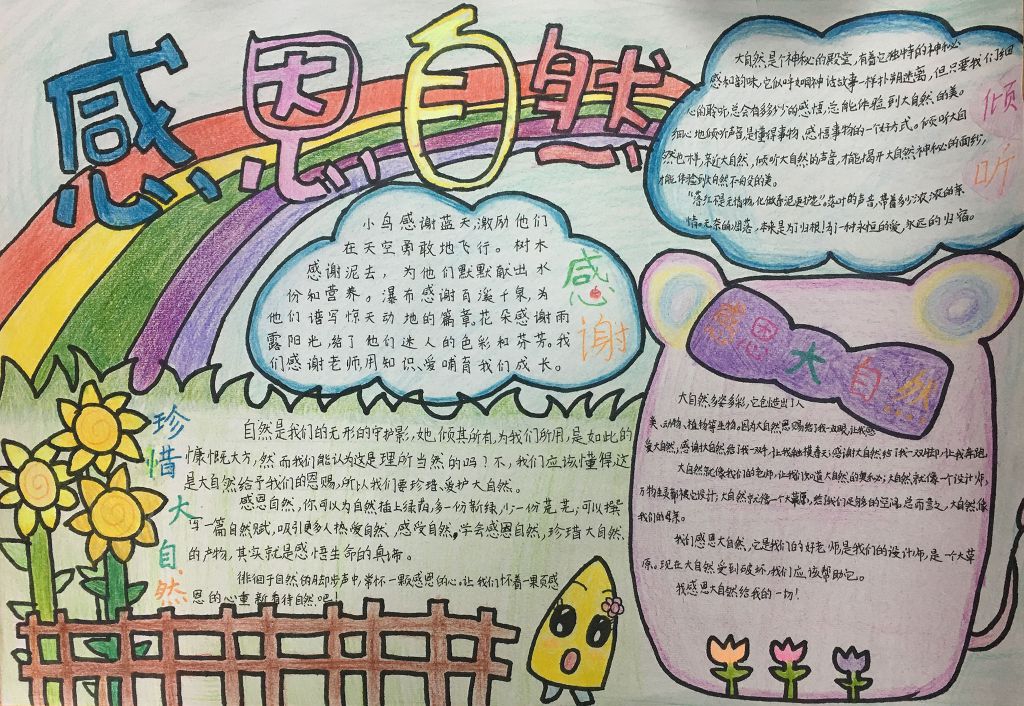 感恩自然
大自然,是个神秘的殿堂,有着它独特的神秘
感和韵味,它似乎如同神话故事一样扑朔迷离,但只要我们细
心的聆听,总会有多多少少的感悟,总能体验到大自然的美。
细心地倾听声音,是懂得事物,感悟事物的一个好方式。倾听大自
然也一样,亲近大自然,倾听大自然的声音,才能揭开大自然神秘的面纱,
才能体验到大自然不自交的美。
"落红不是无情物,化做春泥更护花",落叶的声音,带着多少浓浓的亲
情,无奈的凋落,本来是为了归根!为了一树永恒的爱,永远的归宿。
倾听
小鸟感谢蓝天,激励他们
在天空勇敢地飞行。树木
感谢泥去,为他们默默献出水
份和营养。瀑布感谢百溪千泉,为
他们谱写惊天动地的篇章。花朵感谢雨
露阳光,给了他们迷人的色彩和芬芳。我
们感谢老师用知识、爱哺育我们成长。
感谢
感恩大自然
大自然多姿多彩,它创造出了人
类、动物、植物等生物。因为大自然恩赐给了我一双眼,让我感
爱大自然,感谢大自然给了我一双手,让我触摸春天;感谢大自然给了我一双脚,让我奔跑。
大自然就像我们的老师,让我们知道大自然的奥秘;大自然就像一个设计师,
万物生灵都被它设计;大自然就像一个大草原,给我们足够的空间。总而言之,大自然像
我们的母亲。
我们感恩大自然,它是我们的好老师,是我们的设计师,是一个大草
原。现在大自然受到破坏,我们应该帮助它。
我感恩大自然给我的一切!
珍惜大自然
自然是我们的无形的守护影,她,倾其所有,为我们所用,是如此的
慷慨大方,然而我们能认为这是理所当然的吗?不,我们应该懂得这
是大自然给予我们的恩赐,所以我们要珍惜、爱护大自然。
感恩自然,你可以为自然插上绿荫,多一份新绿,少一份荒芜;可以撰
写一篇自然赋,吸引更多人热爱自然、感受自然。学会感恩自然,珍惜大自然
的产物,其实就是感悟生命的真谛。
徘徊于自然的脚步声中,常怀一颗感恩的心。让我们怀着一颗灵感
恩的心重新看待自然吧!